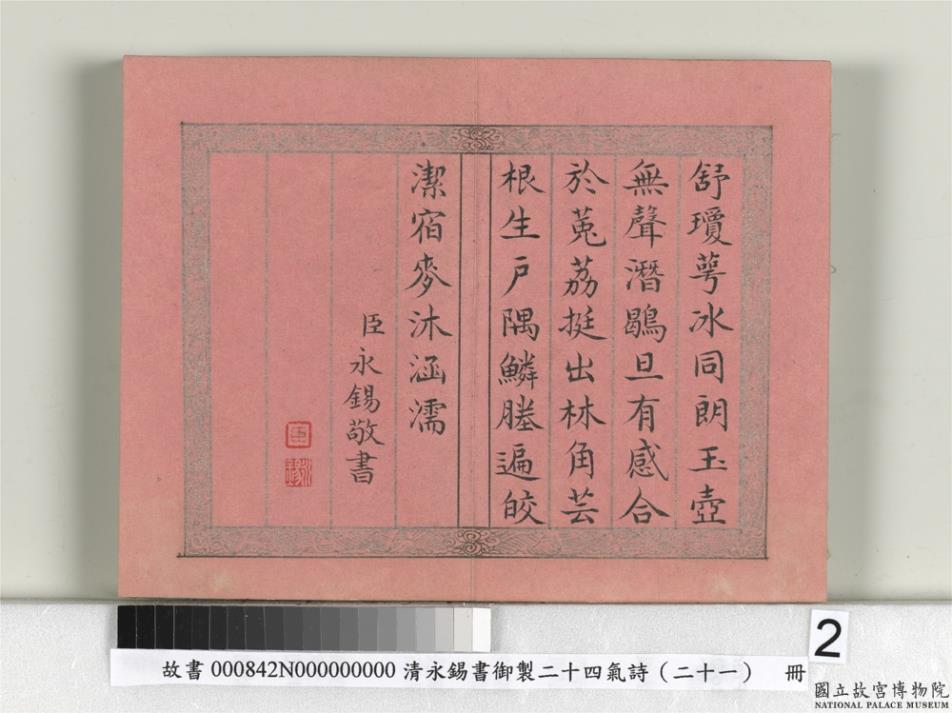 舒瓊萼冰同朗玉壺
無聲潛鶡旦有感合
於菟荔挺出林角芸
根生戶隅鱗塍遍皎
潔宿麥沐涵濡
臣永錫敬書
臣
2
故書 000842N000000000 清永錫書御製二十四氣詩（二十一） 冊
國立故宮博物院
NATIONAL PALACE MUSEUM